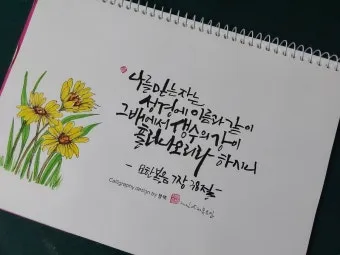 나를 믿는자는
성경에 이름과 같이
그 배에서 생수의 강이
흘러나오리라 하시니
- 요한복음 7장 38절 -
Calligraphy design by